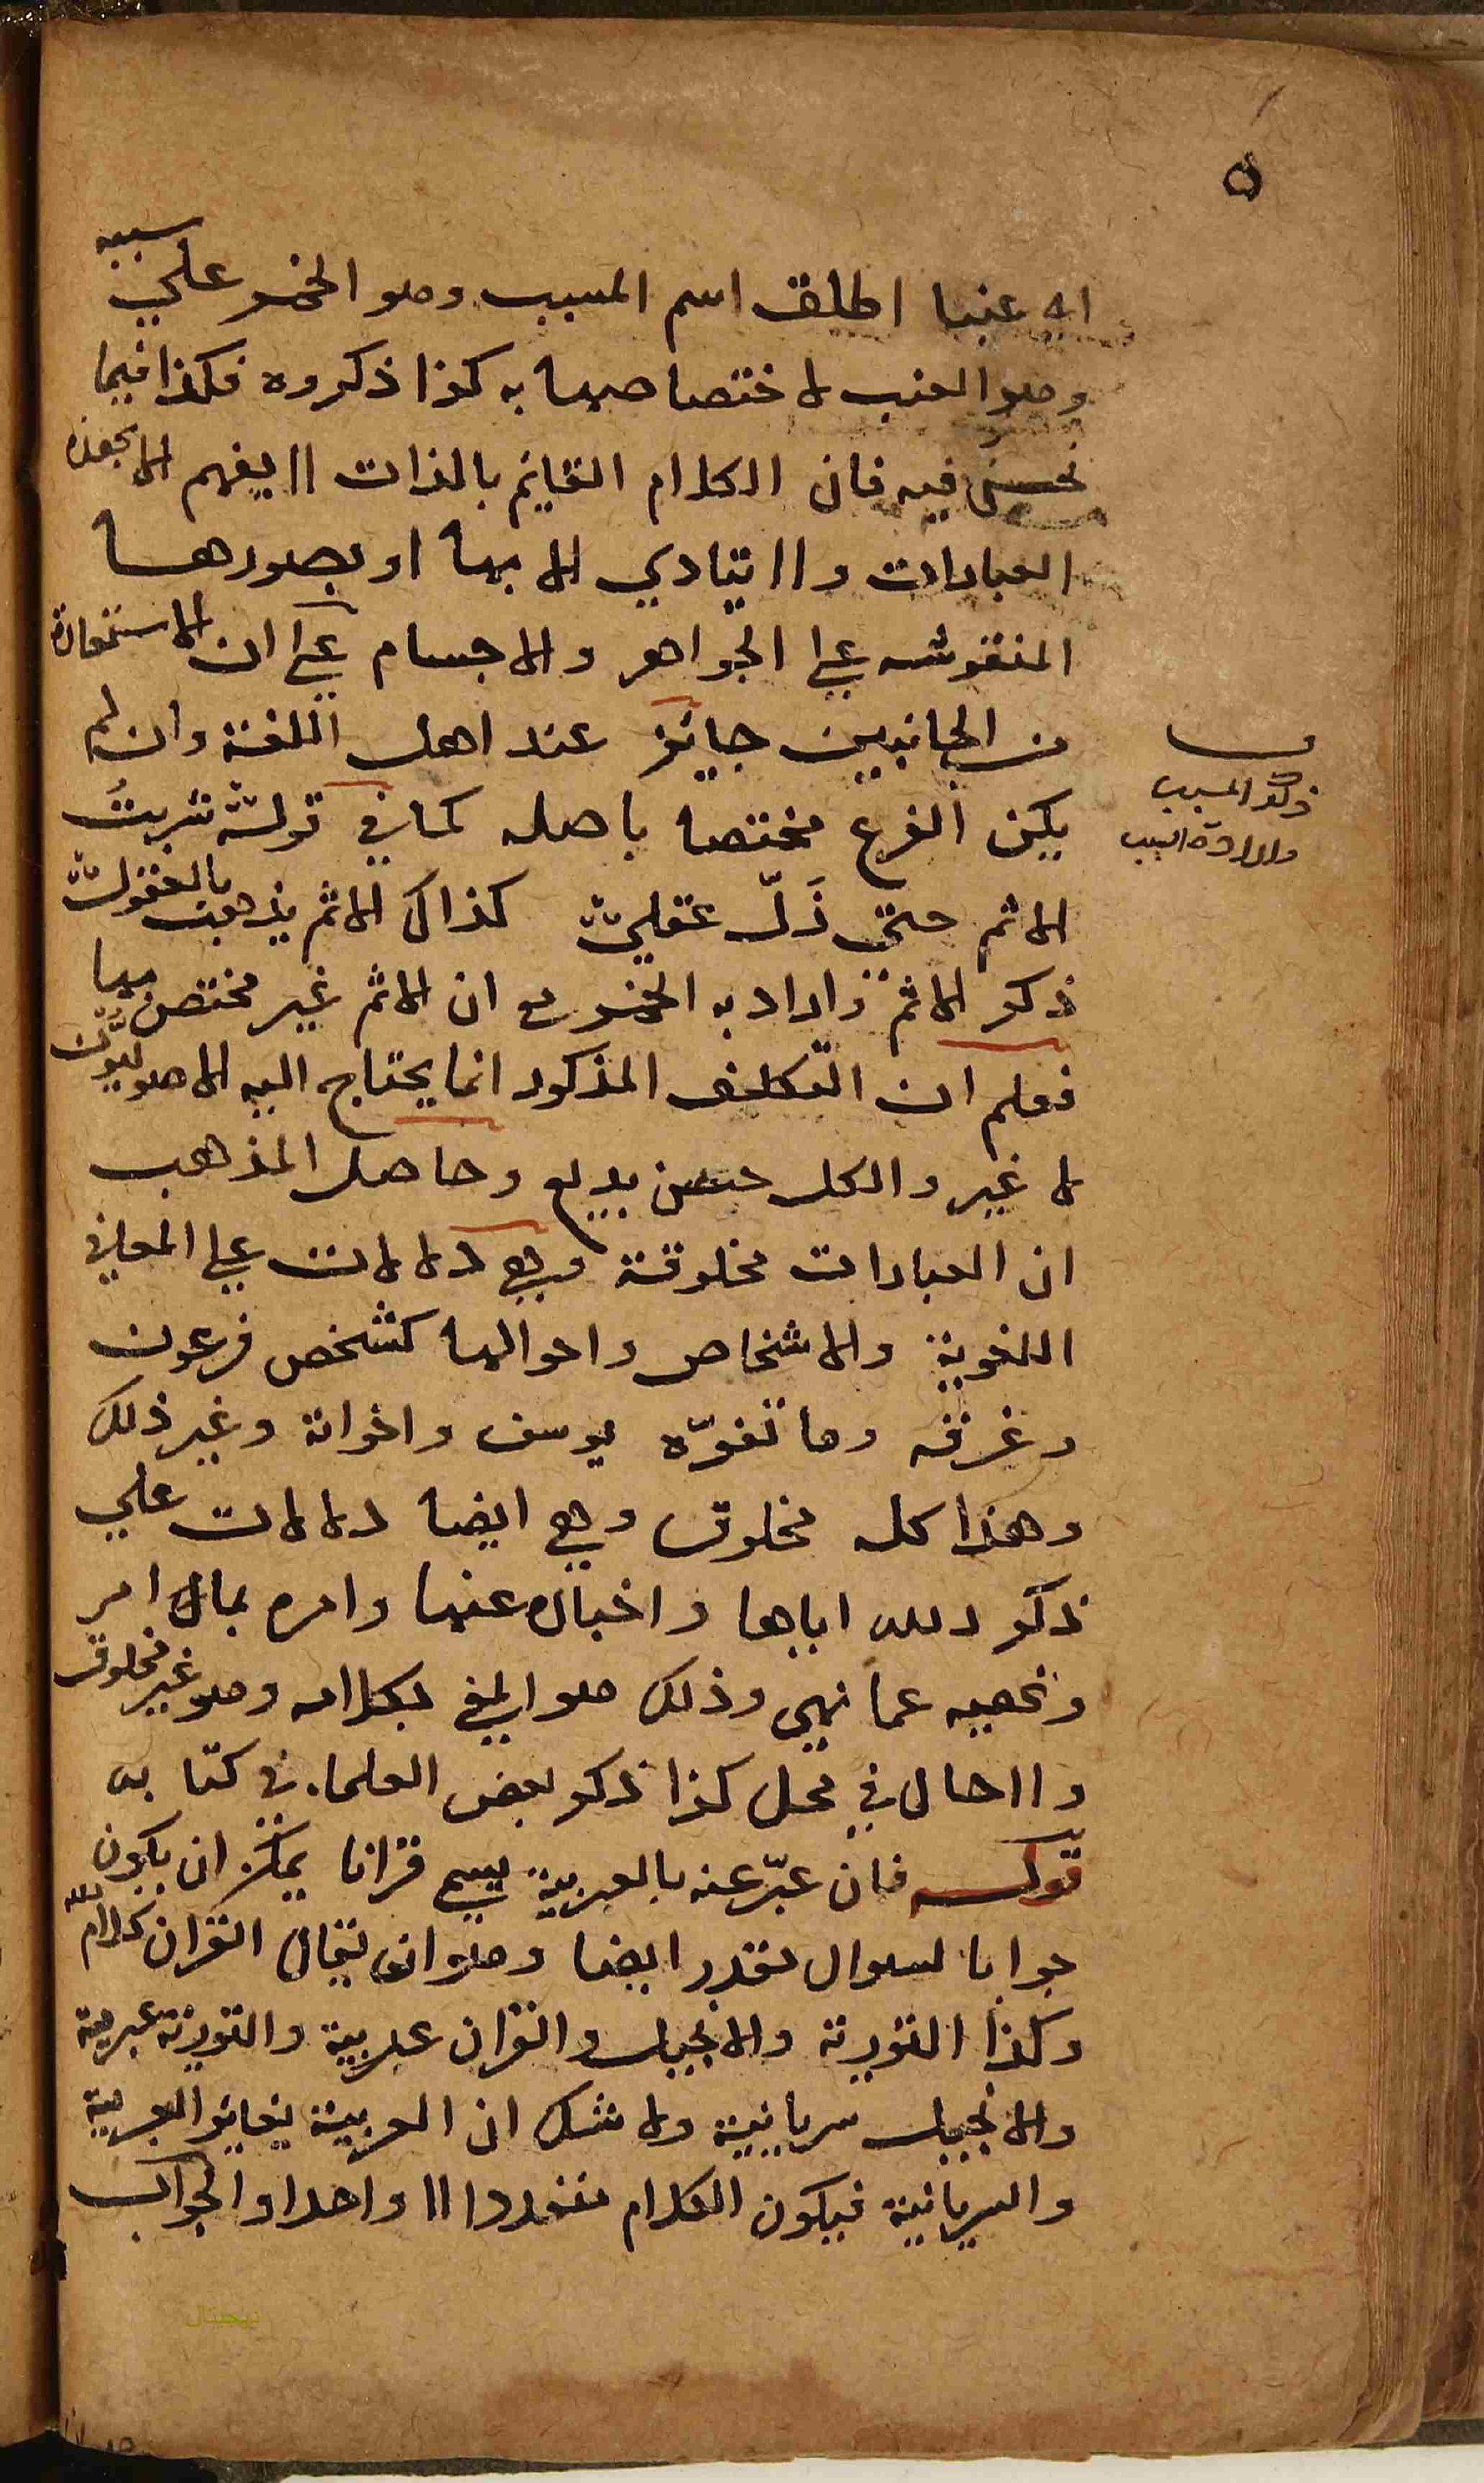 ٥
اي عنبا اطلق اسم المسبب وهو الخمر علي سببه
وهو العنب لاختصاصها به كذا ذكروه فكذا فيما
نحن فيه فان الكلام القايم بالذات لا يفهم الا بهذه
العبارات ولا يتادي الا بها او بصورها
المنقوشه علي الجواهر والاجسام علي ان الاستعارة
من الجانبين جايز عند اهل اللغة وان لم
ذكر المسبب
وارادة السبب
يكن الفرع مختصا باصله كما في قوله شربتُ
الاثم حتى ذَلّ عقلي كذاك الاثم يذهب بالعقول
ذكر الاثم واراد به الخمر مع ان الاثم غير مختص بها
فعلم ان التكلف المذكور انما يحتاج اليه الاصوليون
لا غير والكل حسن بديع وحاصل المذهب
ان العبارات مخلوقة وهي دلالات علي المعاني
اللغوية والاشخاص واحوالها كشخص فرعون
وغرقه وما تفوّه يوسف واخوانه وغير ذلك
وهذا كله مخلوق وهي ايضا دلالات علي
ذكر الله اياها واخباره عنها وامره بما امر
ونهيه عما نهي وذلك هو المعني بكلامه وهو غير مخلوق
ولا حال في محل كذا ذكر بعض العلماء في كتابه
قوله فان عبّر عنه بالعربية يسمي قرانا يمكن ان يكون
جوابا لسوال مقدر ايضا وهو ان يقال القران كلام الله
وكذا التورية والانجيل والقران عربية والتورية عبرية
والانجيل سريانية ولا شك ان العربية يغاير العبرية
والسريانية فيكون الكلام متعددا لا واحدا والجواب